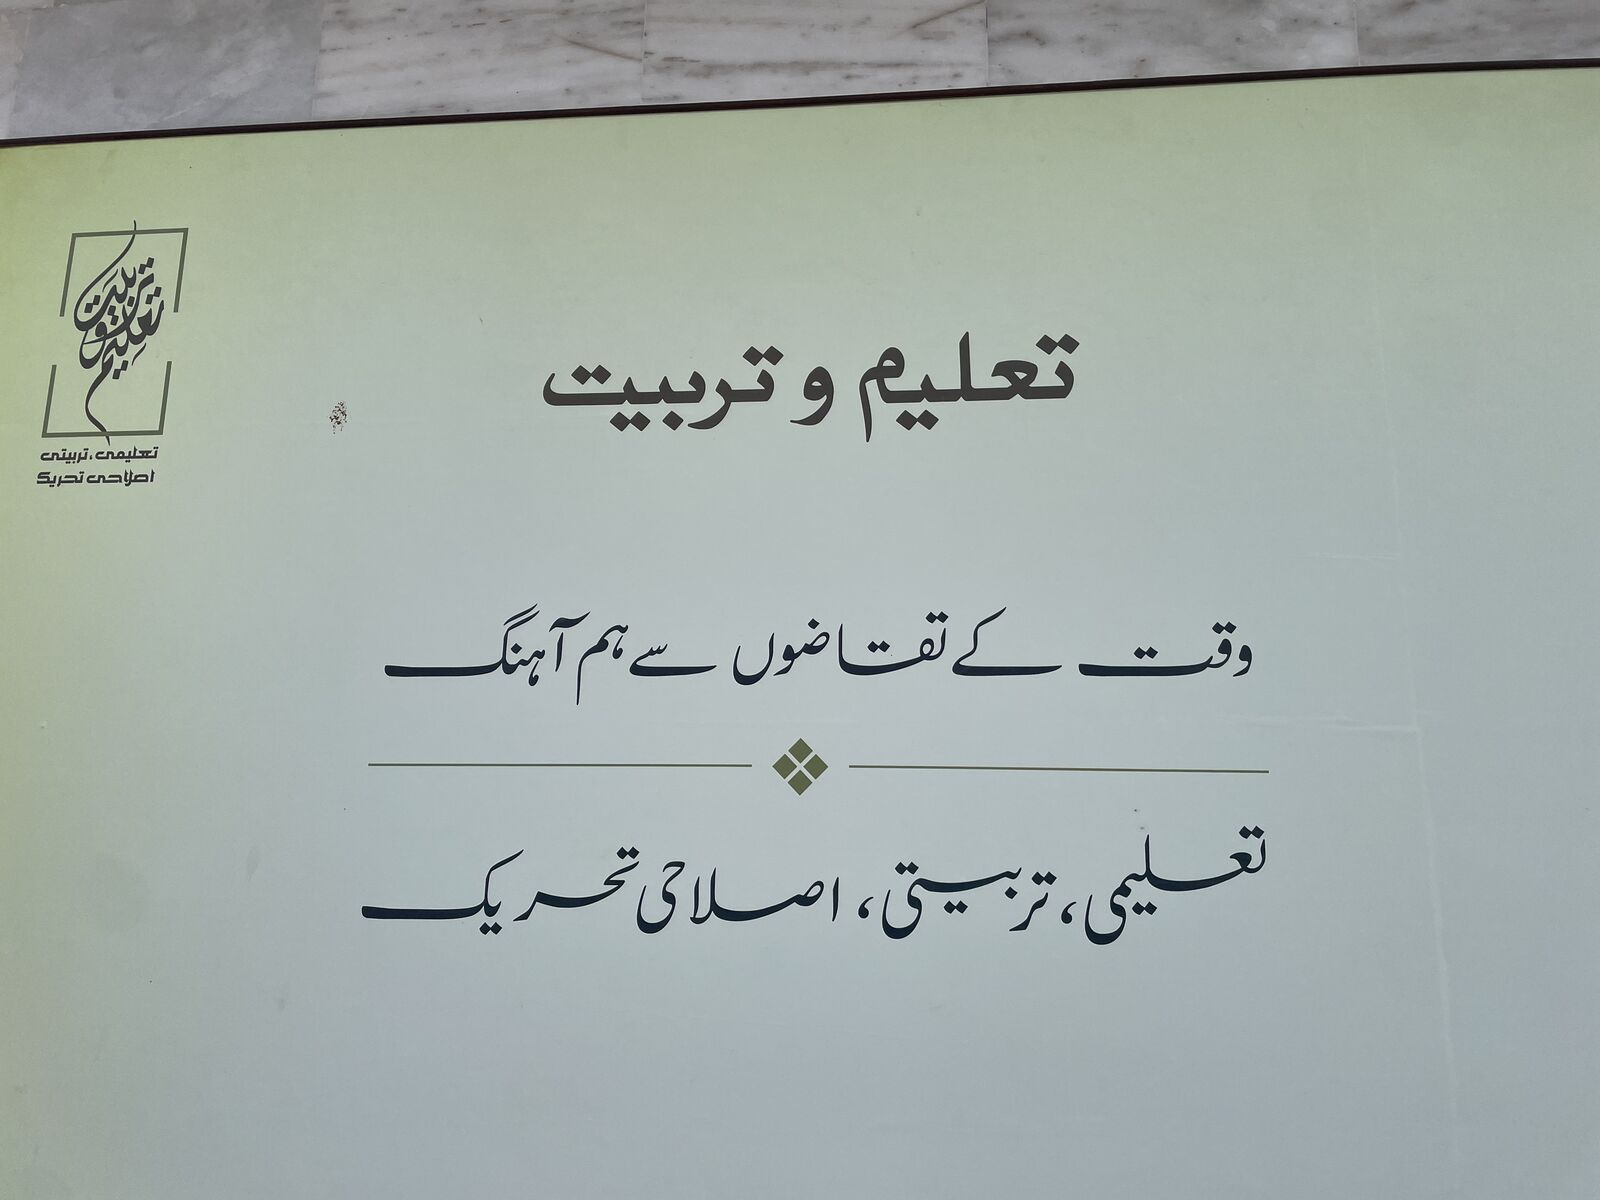 تعلیم و تربیت
تعلیم و تربیت
تعلیمی، تربیتی
اصلاحی تحریک
وقت کے تقاضوں سے ہم آہنگ
تعلیمی، تربیتی، اصلاحی تحریک